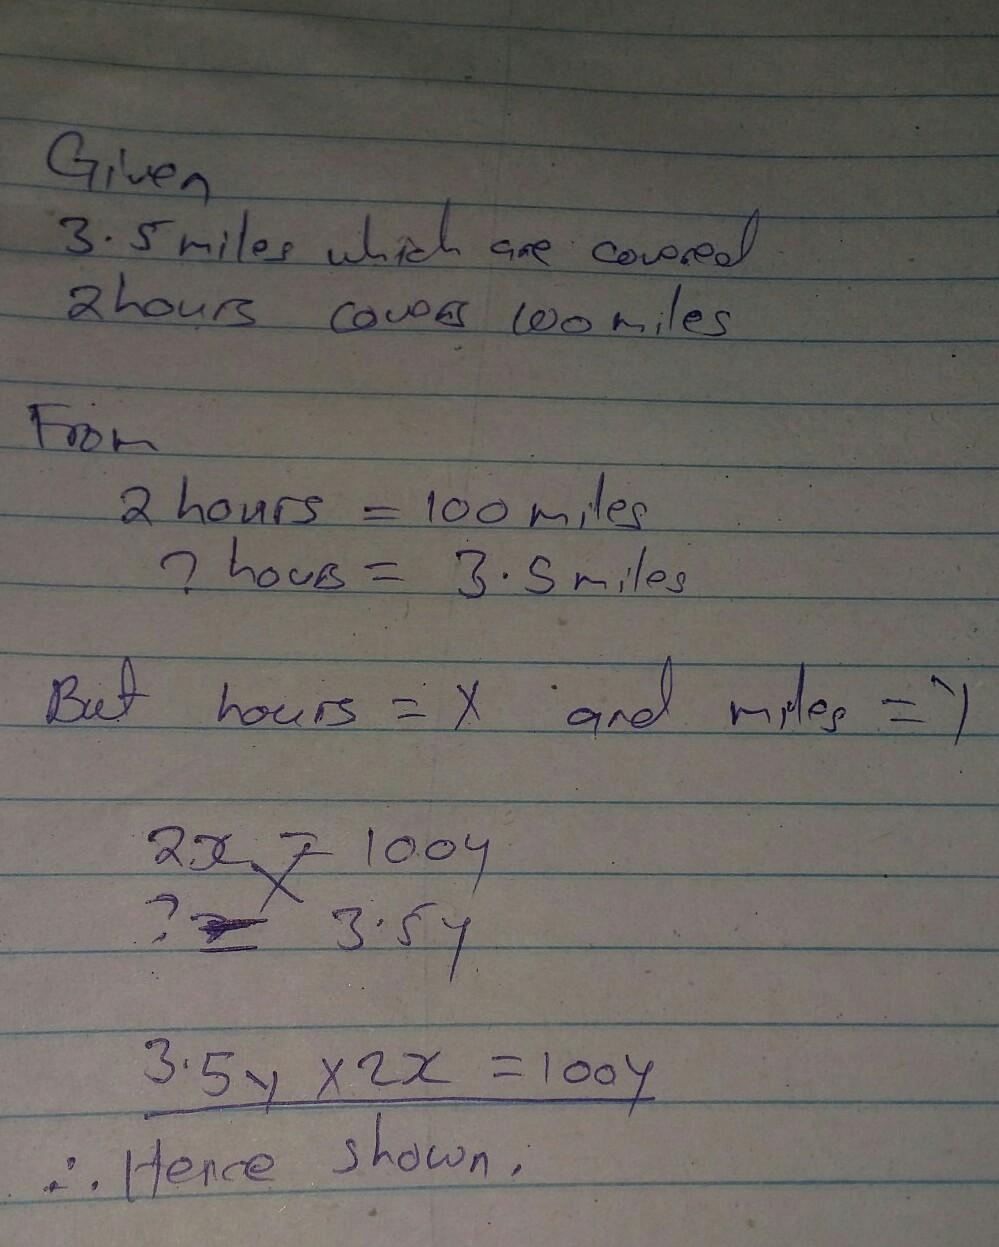 Given
3.5 miles which are covered
2 hours covers 100 miles
From
2 hours = 100 miles
? hours = 3.5 miles
But hours = X and miles = Y
2x = 100y
? = 3.5y
3.5y x 2x = 100y
∴ Hence shown.